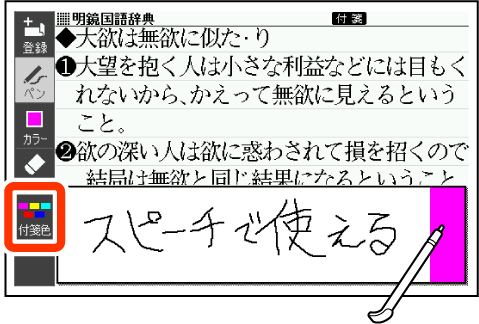 明鏡国語辞典 付箋
登録
ペン
カラー
付箋色
◆大欲は無欲に似た・り
❶大望を抱く人は小さな利益などには目もく
れないから、かえって無欲に見えるという
こと。
❷欲の深い人は欲に惑わされて損を招くので
結局は無欲と同じ結果になるということ
スピーチで使える